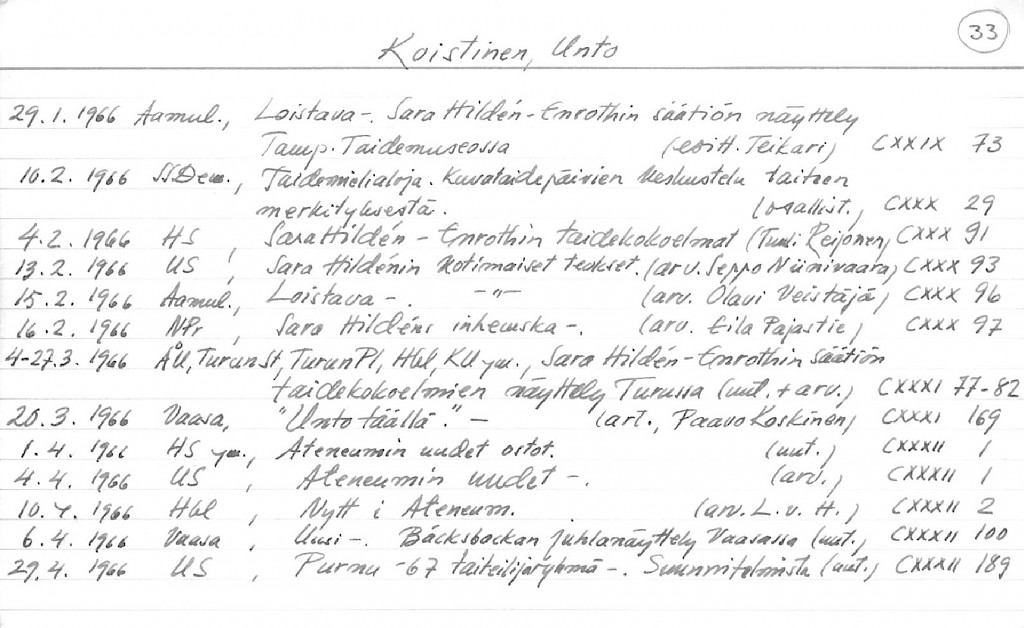 33
Koistinen, Unto
29.1.1966 Aamul., Loistava-. Sara Hildén-Enrothin säätiön näyttely
Tamp. Taidemuseossa (esitt. Teikari) CXXIX 73
10.2.1966 SSDem., Taidemielialoja. Kuvataidepäivien keskustelu taiteen
merkityksestä. (osallist.) CXXX 29
4.2.1966 HS, Sara Hildén-Enrothin taidekokoelmat (Tuuli Reijonen) CXXX 91
13.2.1966 US, Sara Hildénin kotimaiset teokset. (arv. Seppo Niinivaara) CXXX 93
15.2.1966 Aamul., Loistava-. -"- (arv. Olavi Veistäjä) CXXX 96
16.2.1966 NPr, Sara Hildéns inhemska-. (arv. Eila Pajastie) CXXX 97
4-27.3.1966 ÅU, TurunSt, TurunPl, Hbl, KU ym., Sara Hildén-Enrothin säätiön
taidekokoelmien näyttely Turussa (uut. + arv.) CXXXI 77-82
20.3.1966 Vaasa, "Unto täällä". - (art., Paavo Koskinen) CXXXI 169
1.4.1966 HS ym., Ateneumin uudet ostot. (uut.) CXXXII 1
4.4.1966 US, Ateneumin uudet-. (arv.) CXXXII 1
10.4.1966 Hbl, Nytt i Ateneum. (arv. L.v.H.) CXXXII 2
6.4.1966 Vaasa, Uusi-. Bäcksbackan juhlanäyttely Vaasassa (uut.) CXXXII 100
29.4.1966 US, Purnu -67 taiteilijaryhmä-. Suunnitelmista (uut.) CXXXII 189